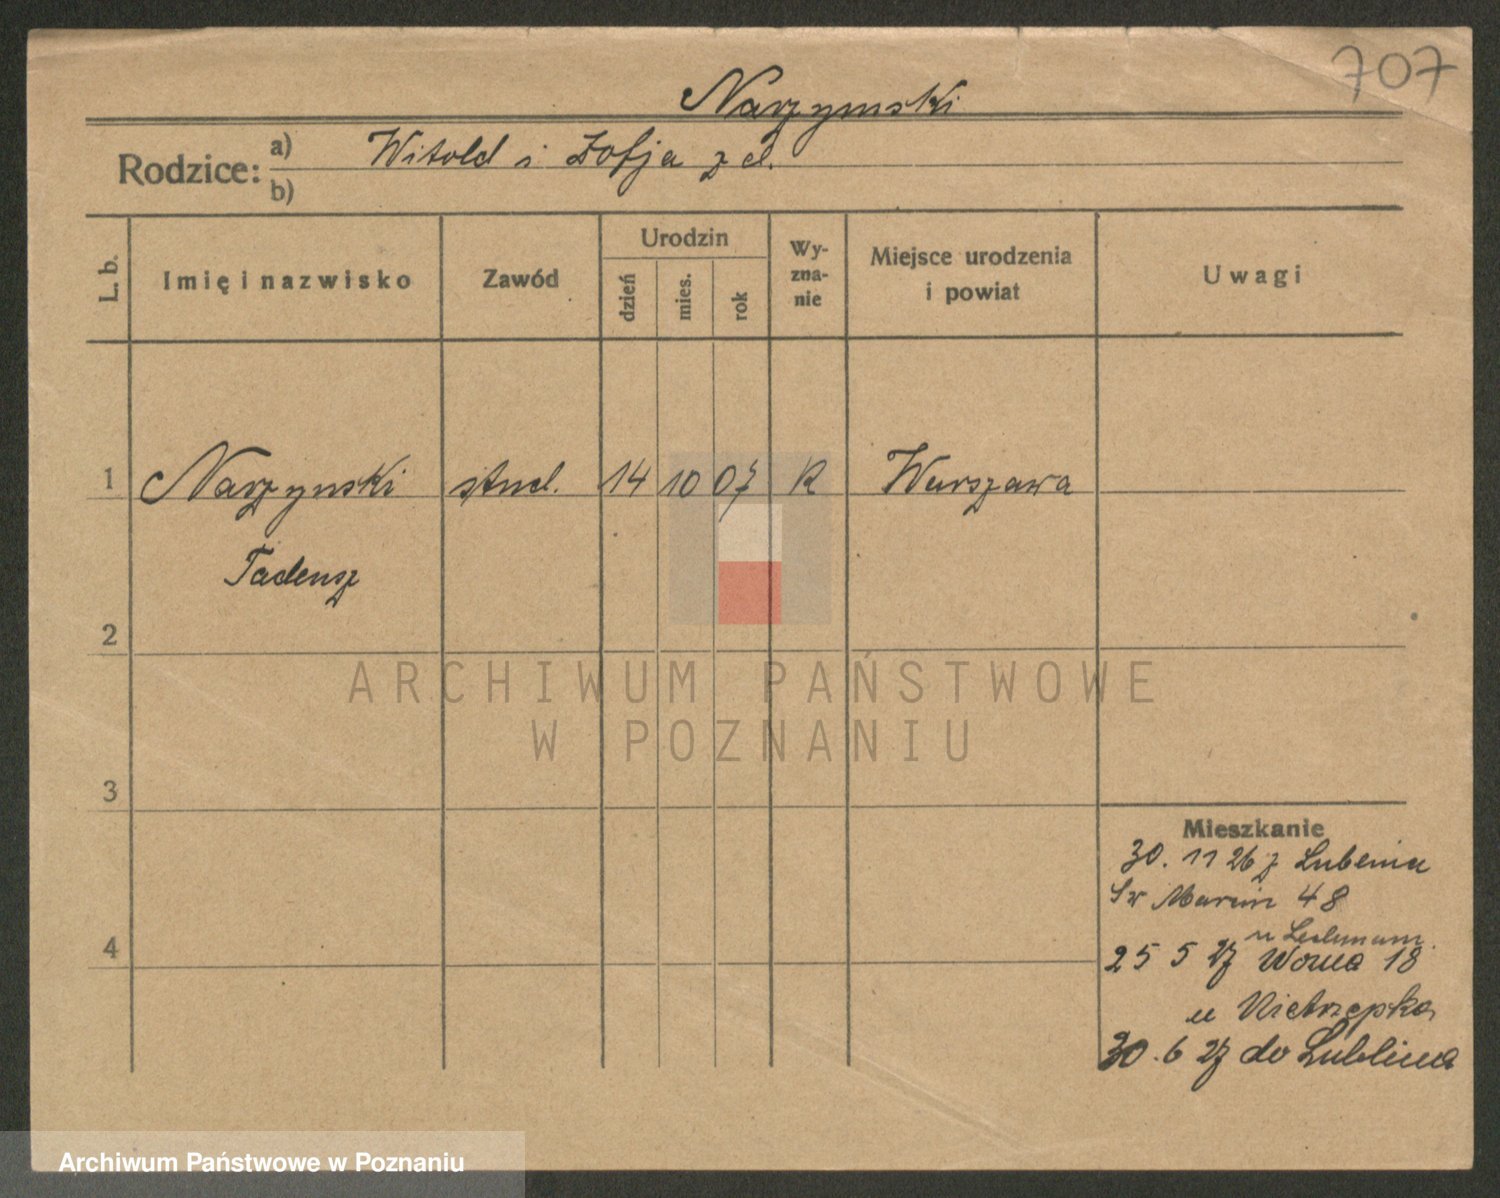 707
Narzymski
Rodzice:
a) Witold i Zofja z d.
b)
L. b.
Imię i nazwisko
Zawód
Urodzin
dzień
mies.
rok
Wy-
zna-
nie
Miejsce urodzenia
i powiat
Uwagi
1 Narzynski stud. 14 10 07 R Warszawa
Tadeusz
2
ARCHIWUM PAŃSTWOWE
W POZNANIU
3
Mieszkanie
30. 11 26 z
Sw Marcin 48
4
25 5 27 18
u
30. 6 27 do Lublina
Archiwum Państwowe w Poznaniu